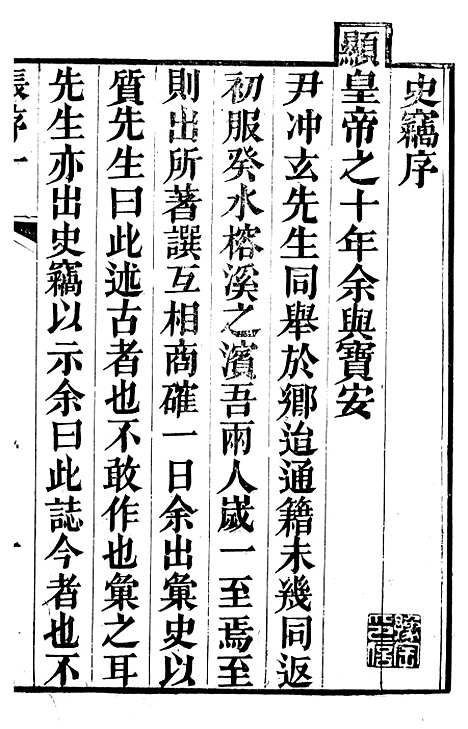 史竊序
顯
皇帝之十年余與寶安
尹冲玄先生同舉於鄉迨通籍未幾同返
初服癸水榕溪之濱吾兩人歲一至焉至
則出所著譔互相商確一日余出彙史以
質先生曰此述古者也不敢作也彙之耳
先生亦出史竊以示余曰此誌今者也不
張序一